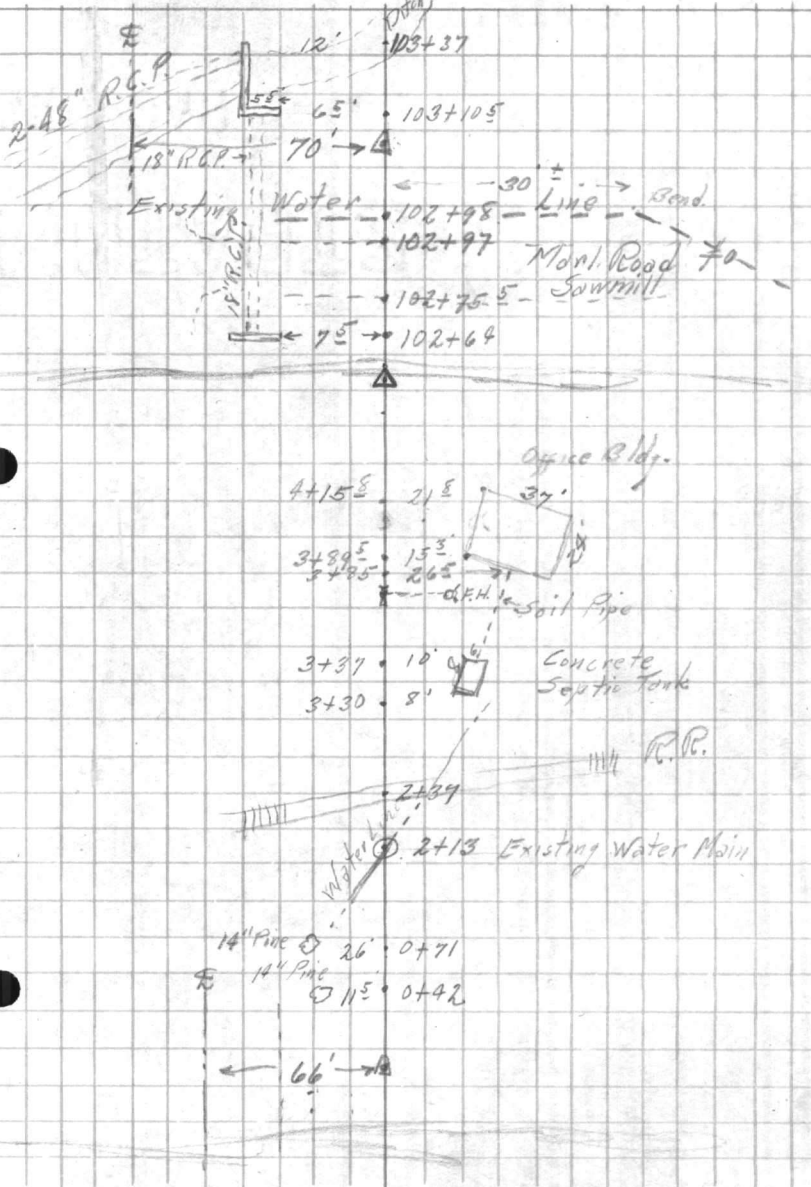 Ditch
℄ 12' 103+37
2-48" R.C.P.
5⁵ 6⁵' 103+10⁵
70'
18" R.C.P.
30' ±
Existing Water 102+98 Line Bend
102+97
Marl. Road To
Sawmill
18" R.C.P.
102+75⁵
7⁵ 102+64
Office Bldg.
4+15⁸ 21⁸ 37'
3+89⁵ 15³
3+85 26⁵
F.H. Soil Pipe
3+37 10' 6' Concrete
Septic Tank
3+30 8'
R.R.
2+39
Water Line
2+13 Existing Water Main
14" Pine 26' 0+71
℄ 14" Pine
11⁵ 0+42
66'